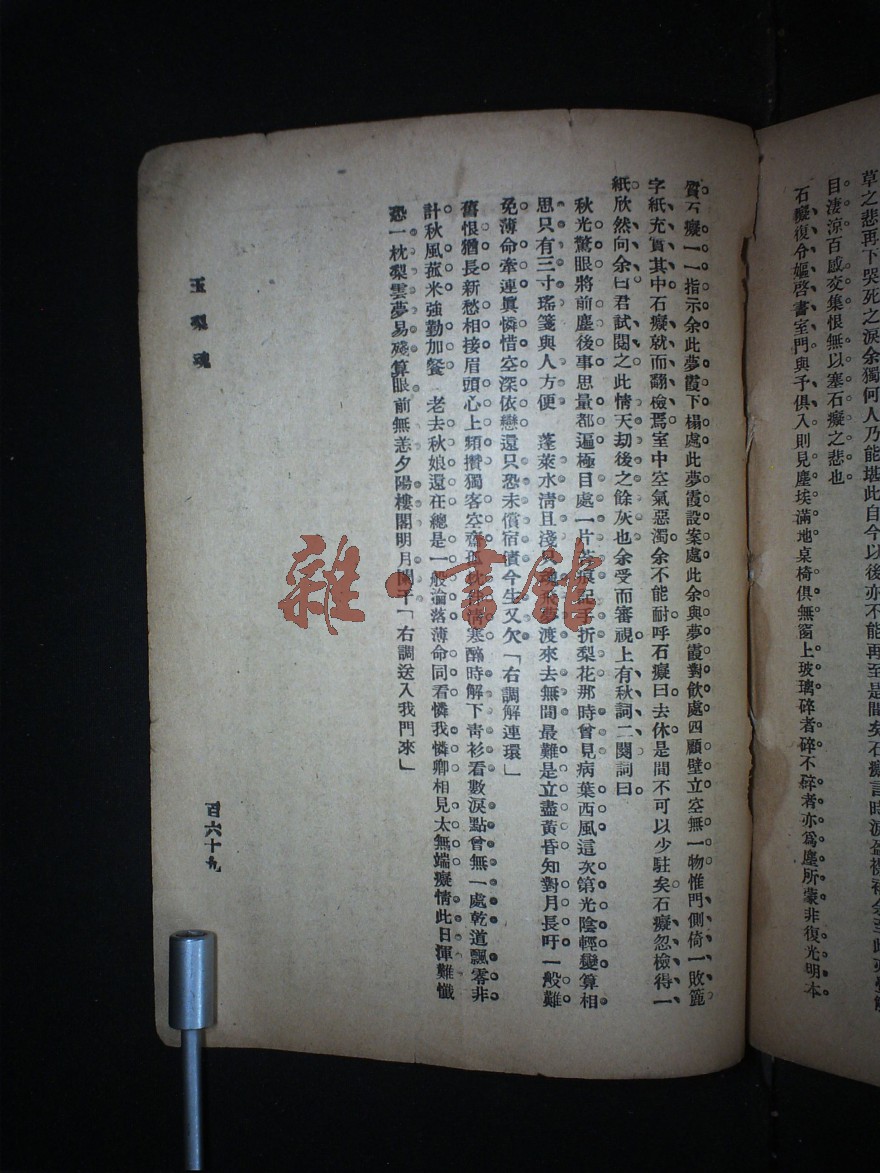 草之悲再下哭死之淚余獨何人乃能堪此自今以後亦不能再至是間矣石癡言時淚盈
目淒涼百感交集恨無以塞石癡之悲也
石癡復令嫗啓書室門與予俱入則見塵埃滿地桌椅俱無窗上玻璃碎者碎不碎者亦爲塵所蒙非復光明本
質石癡一一指示余此夢霞下榻處此夢霞設案處此余與夢霞對飲處四顧壁立空無一物惟門側倚一敗簏
字紙充實其中石癡就而翻檢焉室中空氣惡濁余不能耐呼石癡曰去休是間不可以少駐矣石癡忽檢得一
紙欣然向余曰君試閱之此情天劫後之餘灰也余受而審視上有秋詞二闋詞曰
秋光驚眼將前塵後事思量都遍極目處一片苔痕記手折梨花那時曾見病葉西風這次第光陰輕變算相
思只有三寸瑤箋與人方便 蓬萊水清且淺夢渡來去無間最難是立盡黃昏知對月長吁一般難
免薄命牽連眞憐惜空深依戀還只恐未償宿債今生又欠「右調解連環」
舊恨猶長新愁相接眉頭心上頻攢獨客空齋孤枕清寒醉時解下靑衫看數淚點曾無一處乾道飄零非
計秋風菰米強勸加餐 老去秋娘還在總是一般淪落薄命同看憐我憐卿相見太無端癡情此日渾難懺
恐一枕梨雲夢易殘算眼前無恙夕陽樓閣明月闌干「右調送入我門來」
玉梨魂
百六十九
雜·書館